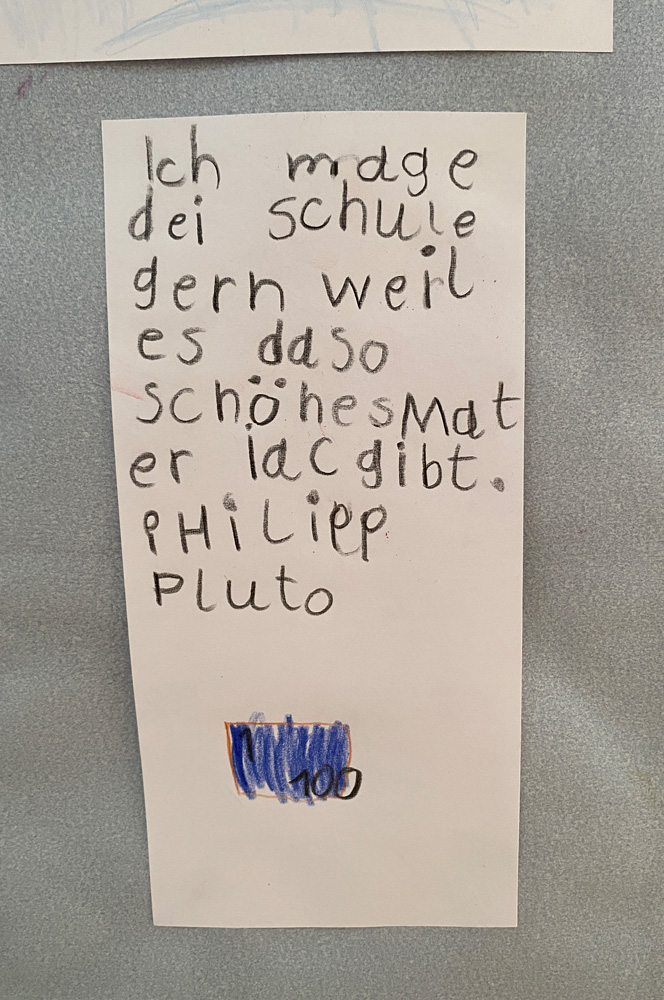 Ich mage
dei schule
gern weil
es daso
schöhesMat
er iac gibt.
PHiLiPP
Pluto
1
100